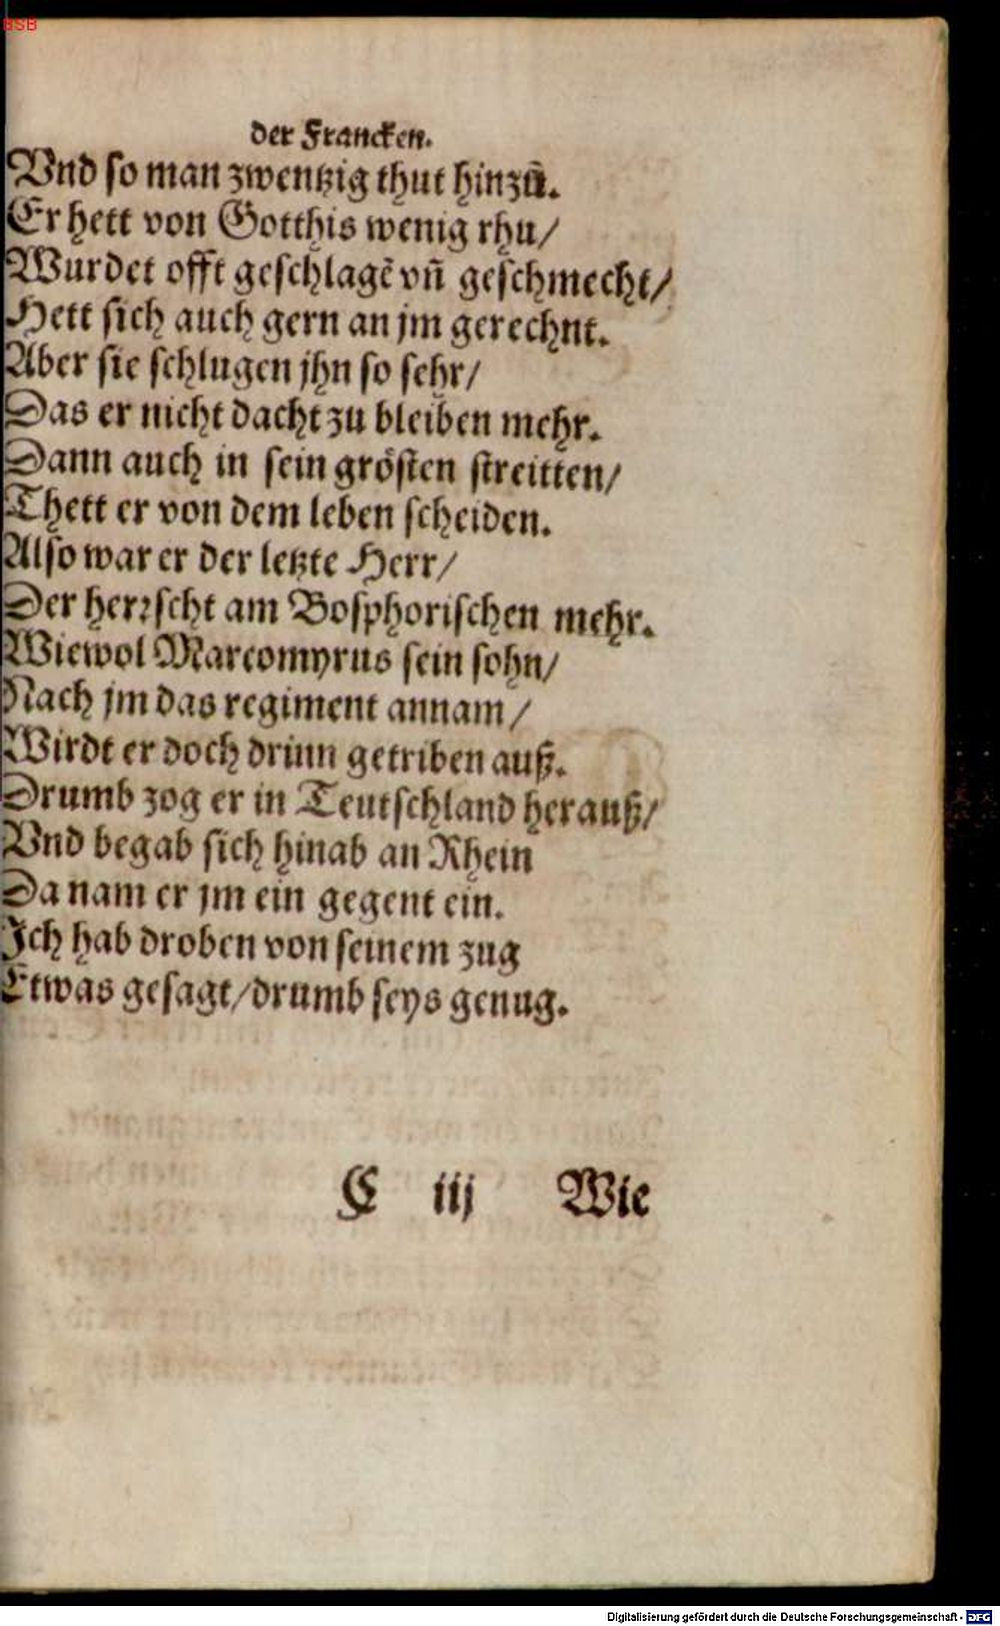 BSB
der Francken.
Vnd so man zwentzig thut hinzů.
Er hett von Gotthis wenig rhu/
Wurdet offt geschlagẽ vñ geschmecht/
Hett sich auch gern an jm gerechnt.
Aber sie schlugen jhn so sehr/
Das er nicht dacht zu bleiben mehr.
Dann auch in sein grösten streitten/
Thett er von dem leben scheiden.
Also war er der letzte Herr/
Der herꝛscht am Bosphorischen mehr.
Wiewol Marcomyrus sein sohn/
Nach jm das regiment annam/
Wirdt er doch drinn getriben auß.
Drumb zog er in Teutschland herauß/
Vnd begab sich hinab an Rhein
Da nam er jm ein gegent ein.
Ich hab droben von seinem zug
Etwas gesagt/drumb seys genug.
C iij Wie
Digitalisierung gefördert durch die Deutsche Forschungsgemeinschaft - DFG